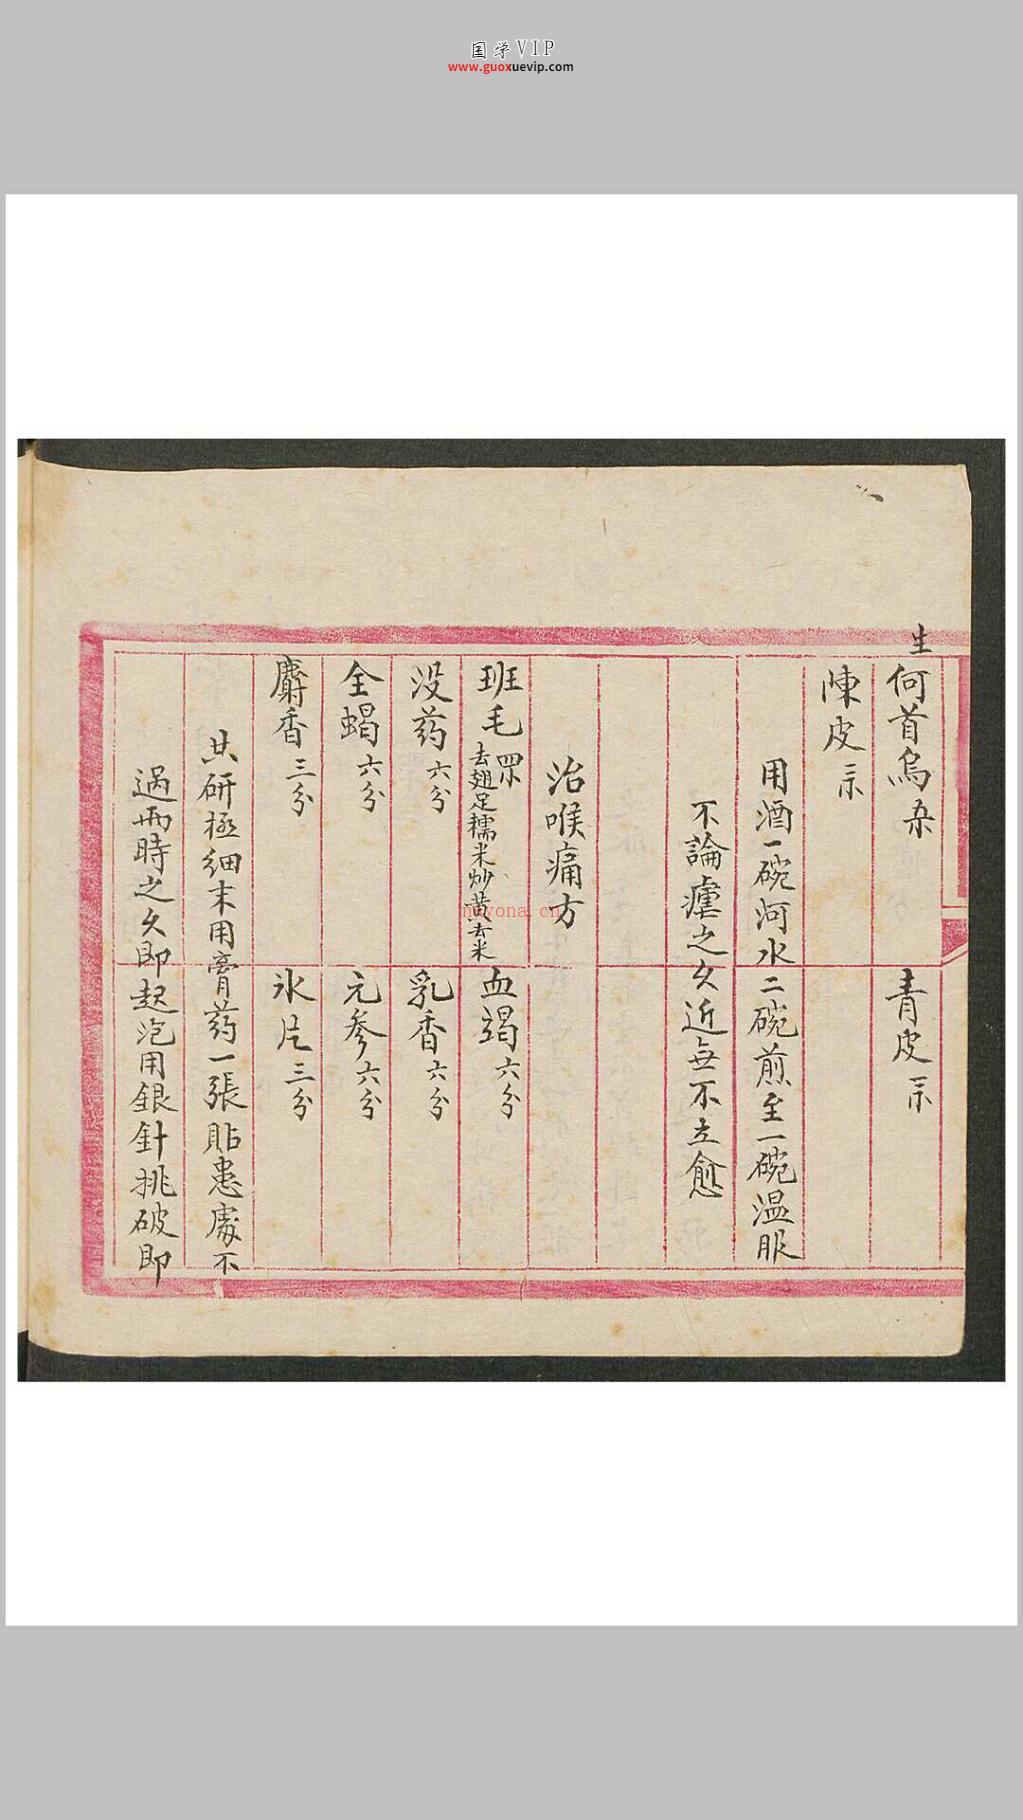 国学VIP
www.guoxuevip.com
生何首烏 青皮
陳皮
用酒一碗河水二碗煎至一碗温服
不論瘧之久近每不立愈
治喉痛方
班毛 去翅足糯米炒黄去米 血竭六分
没药六分 乳香六分
全蝎六分 元參六分
麝香三分 氷片三分
共研極细末用膏药一張貼患處不
過兩時之久即起泡用銀針挑破即
nayona.cn